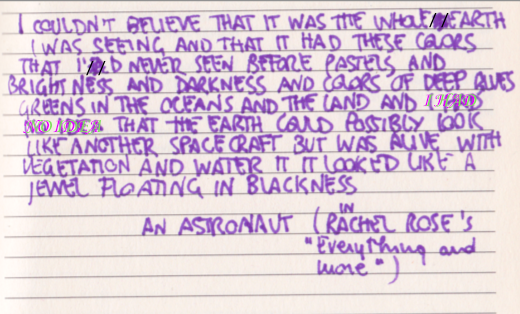 I COULDN'T BELIEVE THAT IT WAS THE WHOLE EARTH
I WAS SEEING AND THAT IT HAD THESE COLORS
THAT I'D NEVER SEEN BEFORE PASTELS AND
BRIGHTNESS AND DARKNESS AND COLORS OF DEEP BLUES
GREENS IN THE OCEANS AND THE LAND AND I HAD
NO IDEA THAT THE EARTH COULD POSSIBLY LOOK
LIKE ANOTHER SPACECRAFT BUT WAS ALIVE WITH
VEGETATION AND WATER IT IT LOOKED LIKE A
JEWEL FLOATING IN BLACKNESS
AN ASTRONAUT (IN RACHEL ROSE'S
"Everything and
more")